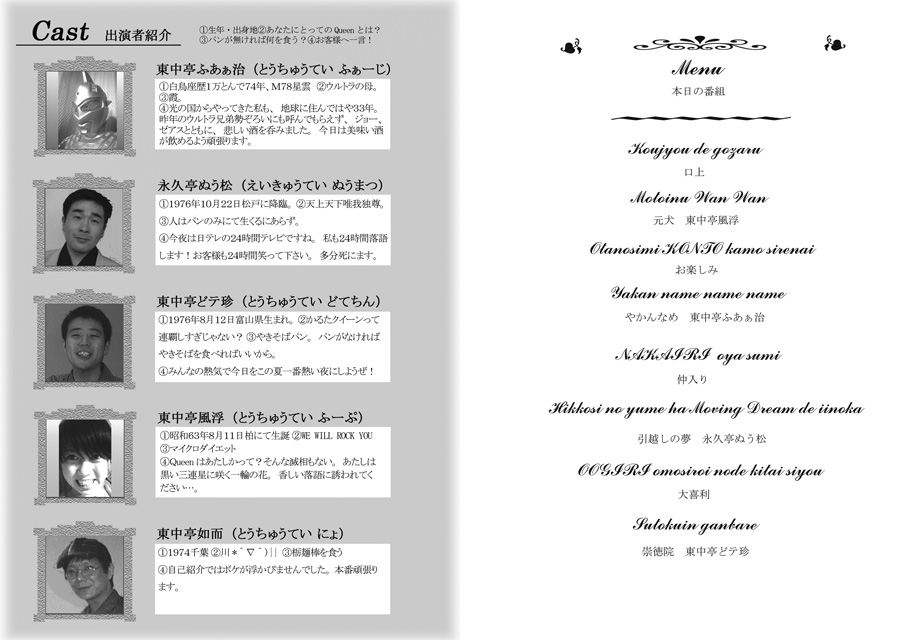 Cast 出演者紹介
①生年・出身地②あなたにとってのQueenとは？
③パンが無ければ何を食う？④お客様へ一言！
東中亭ふあぁ治（とうちゅうてい ふぁーじ）
①白鳥座歴1万とんで74年、M78星雲 ②ウルトラの母。
③霞。
④光の国からやってきた私も、 地球に住んではや33年。
昨年のウルトラ兄弟勢ぞろいにも呼んでもらえず、 ジョー、
ゼアスとともに、 悲しい酒を呑みました。 今日は美味い酒
が飲めるよう頑張ります。
永久亭ぬう松（えいきゅうてい ぬうまつ）
①1976年10月22日松戸に降臨。②天上天下唯我独尊。
③人はパンのみにて生くるにあらず。
④今夜は日テレの24時間テレビですね。 私も24時間落語
します！お客様も24時間笑って下さい。 多分死にます。
東中亭どテ珍（とうちゅうてい どてちん）
①1976年8月12日富山県生まれ。②かるたクイーンって
連覇しすぎじゃない？ ③やきそばパン。 パンがなければ
やきそばを食べればいいから。
④みんなの熱気で今日をこの夏一番熱い夜にしようぜ！
東中亭風浮（とうちゅうてい ふーぷ）
①昭和63年8月11日柏にて生誕 ②WE WILL ROCK YOU
③マイクロダイエット
④Queenはあたしかって？そんな滅相もない。 あたしは
黒い三連星に咲く一輪の花。 香しい落語に誘われてく
ださい…。
東中亭如而（とうちゅうてい にょ）
①1974千葉 ②川＊＾∇＾）|| ③栃麺棒を食う
④自己紹介ではボケが浮かびませんでした。本番頑張り
ます。
Menu
本日の番組
Koujyou de gozaru
口上
Motoinu Wan Wan
元犬 東中亭風浮
Otanosimi KONTO kamo sirenai
お楽しみ
Yakan name name name
やかんなめ 東中亭ふあぁ治
NAKAIRI oya sumi
仲入り
Hikkosi no yume ha Moving Dream de iinoka
引越しの夢 永久亭ぬう松
OOGIRI omosiroi node kitai siyou
大喜利
Sutokuin ganbare
崇徳院 東中亭どテ珍